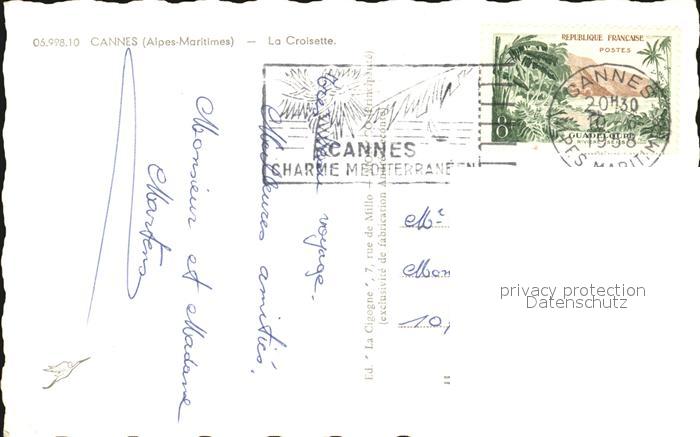 05.998.10 CANNES (Alpes-Maritimes) — La Croisette.
REPUBLIQUE FRANÇAISE
POSTES
8F
GUADELOUPE
CANNES
20H30
ALPES-MARITIM
CANNES
CHARME MEDITERRANÉEN
voyage.
Meilleures amitiés.
Monsieur et Madame
Martens
Ed. "La Cigogne", 7, rue de Millo
(exclusivité de fabrication
Mr
Mon
10,
privacy protection
Datenschutz